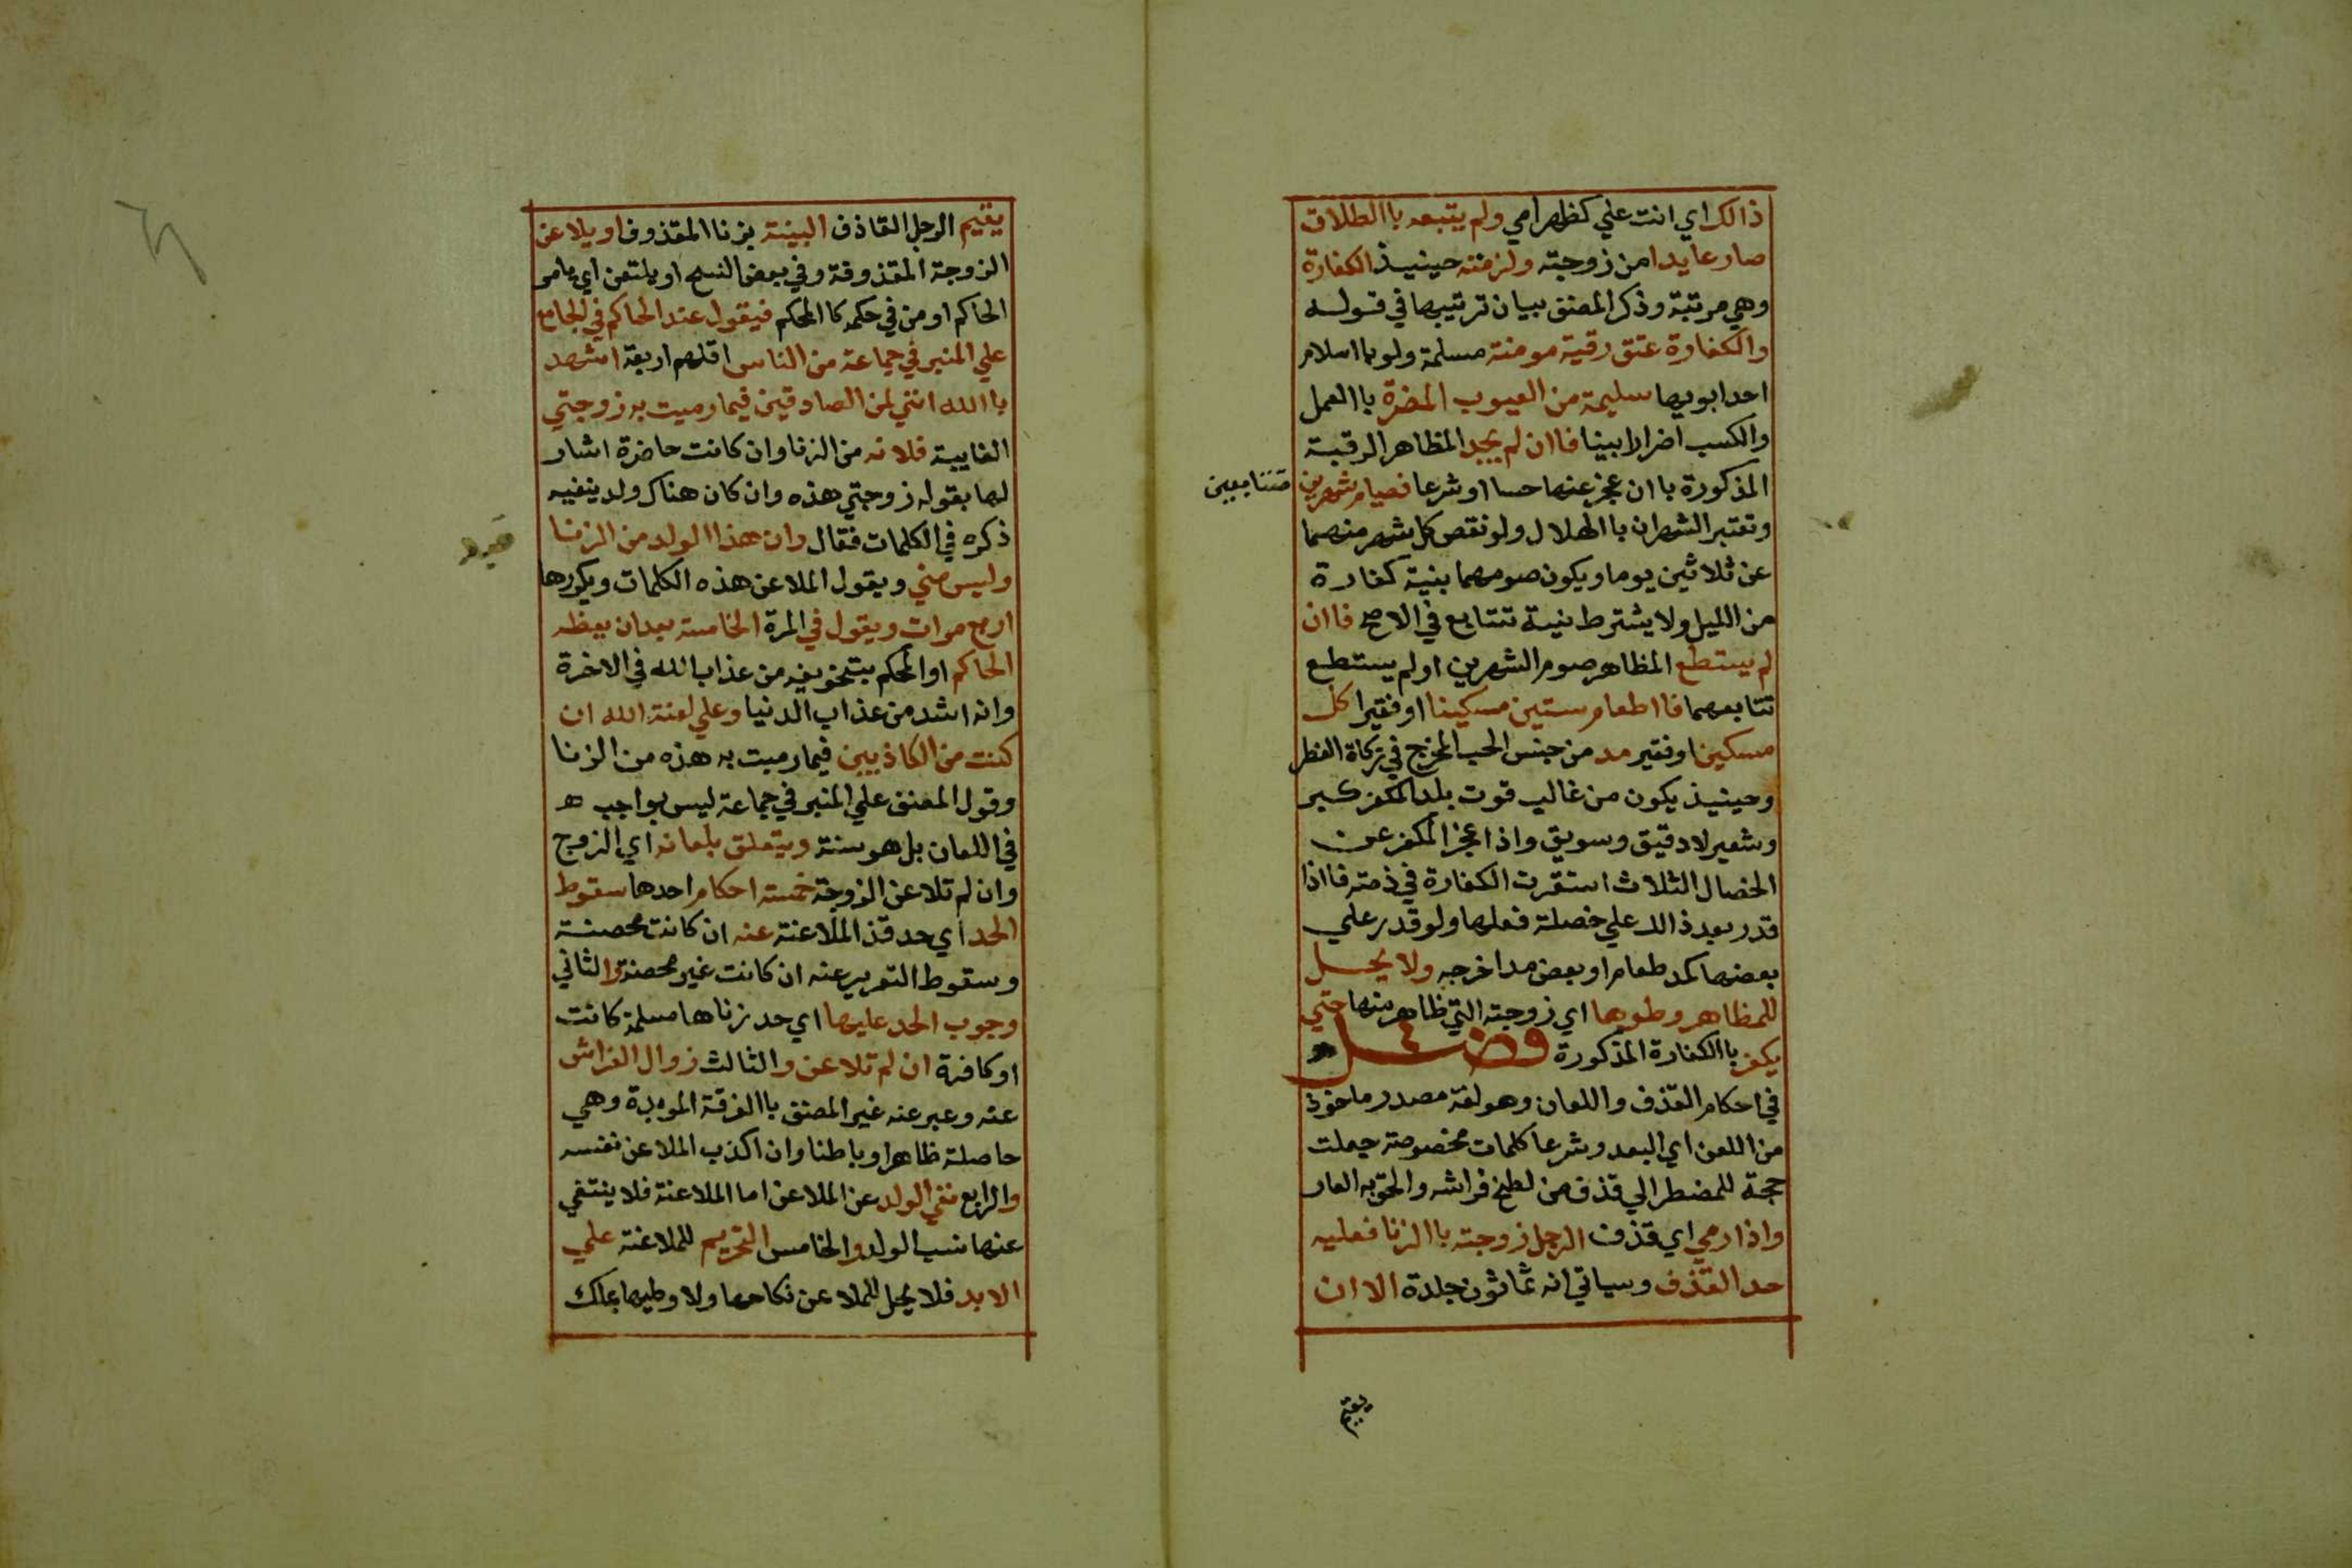 ذالك اي انت علي كظهر امي ولم يتبعه باالطلاق
صار عايدا من زوجته ولزمته حينيذ الكفارة
وهي مرتبة وذكر المصنف بيان ترتيبها في قوله
والكفارة عتق رقبة مومنة مسلمة ولو باسلام
احد ابويها سليمة من العيوب المضرة باالعمل
والكسب اضرارا بينا فاان لم يجد المظاهر الرقبة
المذكورة باان عجز عنها حسا او شرعا فصيام شهرين
متتابعين
وتعتبر الشهران باالهلال ولو نقص كل شهر منهما
عن ثلاثين يوما ويكون صومهما بنية كفارة
من الليل ولا يشترط نية تتتابع في الاصح فاان
لم يستطع المظاهر صوم الشهرين او لم يستطع
تتابعهما فااطعام ستين مسكينا او فقيرا كل
مسكين او فقير مد من جنس الحب المخرج في زكاة الفطر
وحينيذ يكون من غالب قوت بلد المكفر كبر
وشعير لا دقيق وسويق واذا عجز المكفر عن
الخصال الثلاث استقرت الكفارة في ذمته فااذا
قدر بعد ذالك علي خصلة فعلها ولو قدر علي
بعضها كمد طعام او بعض مد اخرجه ولا يحل
للمظاهر وطوها اي زوجته التي ظاهر منها حتي
يكفر باالكفارة المذكورة فصل
في احكام القذف واللعان وهو لغة مصدر ماخوذ
من اللعن اي البعد وشرعا كلمات مخصوصة جعلت
حجة للمضطر الي قذف من لطخ فراشه والحق به العار
واذا رمي اي قذف الرجل زوجته باالزنا فعليه
حد القذف وسياتي انه ثمانون جلدة الا ان
يقيم
يقيم الرجل القاذف البينة بزنا المقذوف او يلاعن
الزوجة المقذوفة وفي بعض النسخ او يلتعن اي بامر
الحاكم او من في حكمه كاالمحكم فيقول عند الحاكم في الجامع
علي المنبر في جماعة من الناس اقلهم اربعة اشهد
باالله انني لمن الصادقين فيما رميت به زوجتي
الغايبة فلانه من الزنا وان كانت حاضرة اشار
لها بقوله زوجتي هذه وان كان هناك ولد ينفيه
ذكره في الكلمات فقال وان هذا الولد من الزنا
وليس مني ويقول الملاعن هذه الكلمات ويكررها
اربع مرات ويقول في المرة الخامسة بعد ان يعظه
الحاكم او المحكم بتخويفه من عذاب الله في الاخرة
وانه اشد من عذاب الدنيا وعلي لعنة الله ان
كنت من الكاذبين فيما رميت به هذه من الزنا
وقول المصنف علي المنبر في جماعة ليس بواجب ه
في اللعان بل هو سنة ويتعلق بلعانه اي الزوج
وان لم تلاعن الزوجة خمسة احكام احدها سقوط
الحد اي حد قذف الملاعنة عنه ان كانت محصنة
وسقوط التعزير عنه ان كانت غير محصنة والثاني
وجوب الحد عليها اي حد زناها مسلمة كانت
او كافرة ان لم تلاعن والثالث زوال الفراش
عنه وعبر عنه غير المصنف باالفرقة الموبدة وهي
حاصلة ظاهرا وباطنا وان اكذب الملاعن نفسه
والرابع نفي الولد عن الملاعن اما الملاعنة فلا ينتفي
عنها نسب الولد والخامس التحريم للملاعنة علي
الابد فلا يحل للملاعن نكاحها ولا وطيها بملك